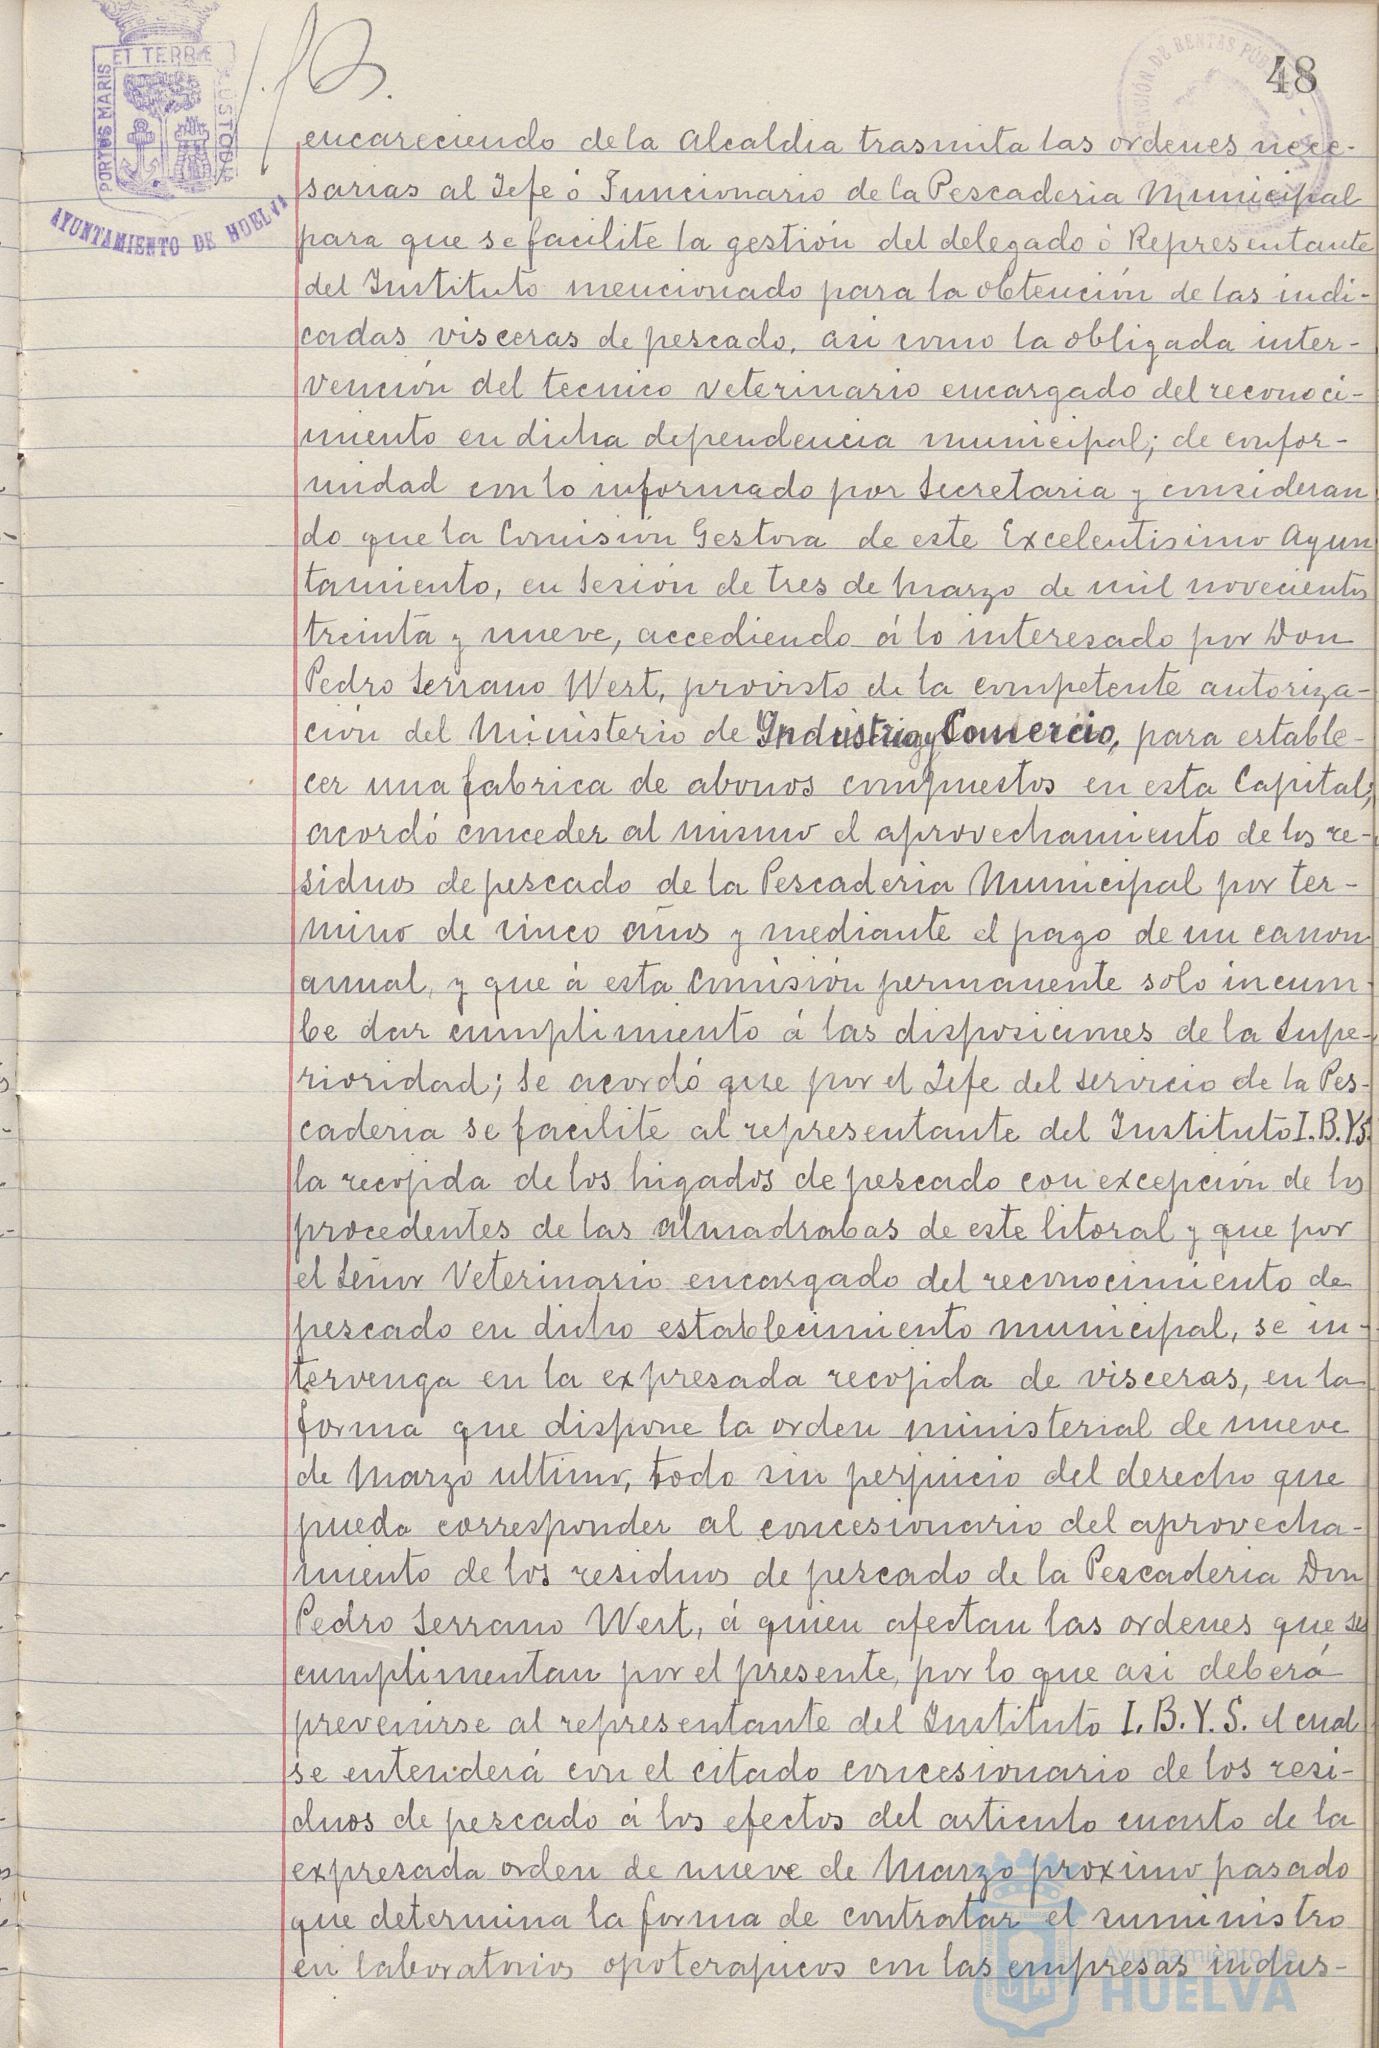 48
PORTUS MARIS ET TERRÆ CUSTODIA
AYUNTAMIENTO DE HUELVA
encareciendo de la Alcaldia trasmita las ordenes nece-
sarias al Jefe ó Funcionario de la Pescaderia Municipal
para que se facilite la gestión del delegado ó Representante
del Instituto mencionado para la obtención de las indi-
cadas visceras de pescado, asi como la obligada inter-
vención del tecnico veterinario encargado del reconoci-
miento en dicha dependencia municipal; de confor-
midad con lo informado por Secretaria y consideran
do que la Comisión Gestora de este Excelentisimo Ayun
tamiento, en sesión de tres de Marzo de mil novecientos
treinta y nueve, accediendo á lo interesado por Don
Pedro Serrano West, provisto de la competente autoriza-
ción del Ministerio de Industria y Comercio, para estable-
cer una fabrica de abonos compuestos en esta Capital;
acordó conceder al mismo el aprovechamiento de los re-
siduos de pescado de la Pescaderia Municipal por ter-
mino de cinco años y mediante el pago de un canon
anual, y que á esta Comisión permanente solo incum-
be dar cumplimiento á las disposiciones de la Supe-
rioridad; se acordó que por el Jefe del servicio de la Pes-
caderia se facilite al representante del Instituto I.B.Y.S.
la recojida de los higados de pescado con excepción de los
procedentes de las almadrabas de este litoral y que por
el Señor Veterinario encargado del reconocimiento de
pescado en dicho establecimiento municipal, se in-
tervenga en la expresada recojida de visceras, en la
forma que dispone la orden ministerial de nueve
de Marzo ultimo, todo sin perjuicio del derecho que
pueda corresponder al concesionario del aprovecha-
miento de los residuos de pescado de la Pescaderia Don
Pedro Serrano West, á quien afectan las ordenes que se
cumplimentan por el presente, por lo que asi deberá
prevenirse al representante del Instituto I.B.Y.S. el cual
se entenderá con el citado concesionario de los resi-
duos de pescado á los efectos del articulo cuarto de la
expresada orden de nueve de Marzo proximo pasado
que determina la forma de contratar el suministro
en laboratorios opoterapicos con las empresas indus-
Ayuntamiento de
HUELVA